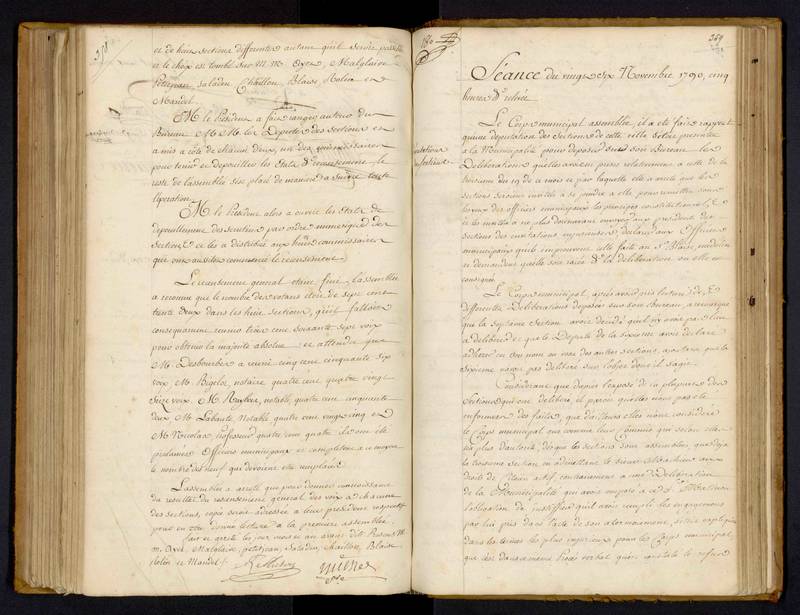 358
et de huit sections differentes autant qu'il seroit possible
et le choix est tombé sur M.M. Ayet, Malglaive
Petitjean, Saladin, Chatillon, Blaise, Rolin et
Mandel.
M. le President a fait ranger autour du
Bureau M.M. les Deputés des Sections et
a mis a côté de chacun deux, un des commissaires
pour tenir et depouiller les Etats de recensement, le
reste de lassemblée sest placé de maniere a suivre toute
loperation.
M. le President alors a ouvert les Etats de
depouillement des scrutins par ordre numerique des
Sections et les a distribué aux huit commissaires
qui ont aussitot commencé le recensement.
Le recensement general etant fini, lassemblée
a reconnu que le nombre des votans etoit de sept cent
trente deux dans les huit Sections, quil falloit
consequament trois cent soixante sept voix
pour obtenir la majorité absolue et attendu que
M. Desbourbes a reuni cinq cent cinquante six
voix, M. Bigelot, notaire quatre cent quatre vingt
seize voix, M. notable, quatre cent cinquante
deux, M. Labauté, Notable quatre cent vingt cinq et
M. Nicolas, Professeur quatre cent quatre ils ont été
proclamés Officiers municipaux et completent a ce moyen
le nombre des neuf qui devoient etre remplacés.
Lassemblée a arreté que pour donner connoissance
du resultat du recensement general des voix a chacune
des sections, copie seroit adressée a leur president respectif
pour en donner lecture a la premiere assemblée.
Fait et arreté les jour, mois et an avant dits Presens M.
M. Ayet, Malglaive, petitjean, Saladin, chatillon, Blaise
Rolin et Mandel.
359
Séance du vingt six Novembre 1790, cinq
heures de relevée
Le Corps municipal assemblé, il a été fait rapport
quune deputation des Sections de cette ville setoit presentée
a la Municipalité pour deposer sur son Bureau les
Deliberations quelles avoient prises relativement a celle de la
troisieme du 19 de ce mois et par laquelle elle a arreté que les
sections seroient invitées a se joindre a elle pour remettre sous
les yeux des officiers municipaux les principes constitutionnels, &
et les inviter a ne plus dorenavant envoyer aux president des
sections des invitations injurieuses declarant aux Officiers
municipaux quelle improuvoit celle faite au S. Blaise, medecin
et demandant quelle soit raiée de la deliberation ou elle est
consignée.
Le Corps municipal, après avoir pris lecture des
differentes Deliberations deposées sur son Bureau, a remarqué
que la septieme Section avoit decidé quil ny avoit pas lieu
a deliberer et que le Deputé de la sixieme avoit declaré
adherer en son nom au voeu des autres sections, ajoutant que la
sixieme navoit pas deliberé sur lobjet dont il sagit.
Considerant que dapres lexposé de la plupart des
Sections qui ont deliberé, il paroit quelles nont pas été
informées des faits, que dailleurs elles nont consideré
le Corps municipal que comme leur Commis qui selon elles
na plus dautorité, dès que les sections sont assemblées, que deja
la troisieme section en admettant le sieur Mathieu au
droit de Citoien actif contrairement a une Deliberation
de la Municipalité qui avoit imposé a ce S. Mathieu
lobligation de justifier quil avoit rempli les engagemens
par lui pris dans lacte de son attermoiement, setoit expliquée
dans les termes les plus injurieux pour le Corps municipal,
que dès davancement Procès verbal qui constate le refus